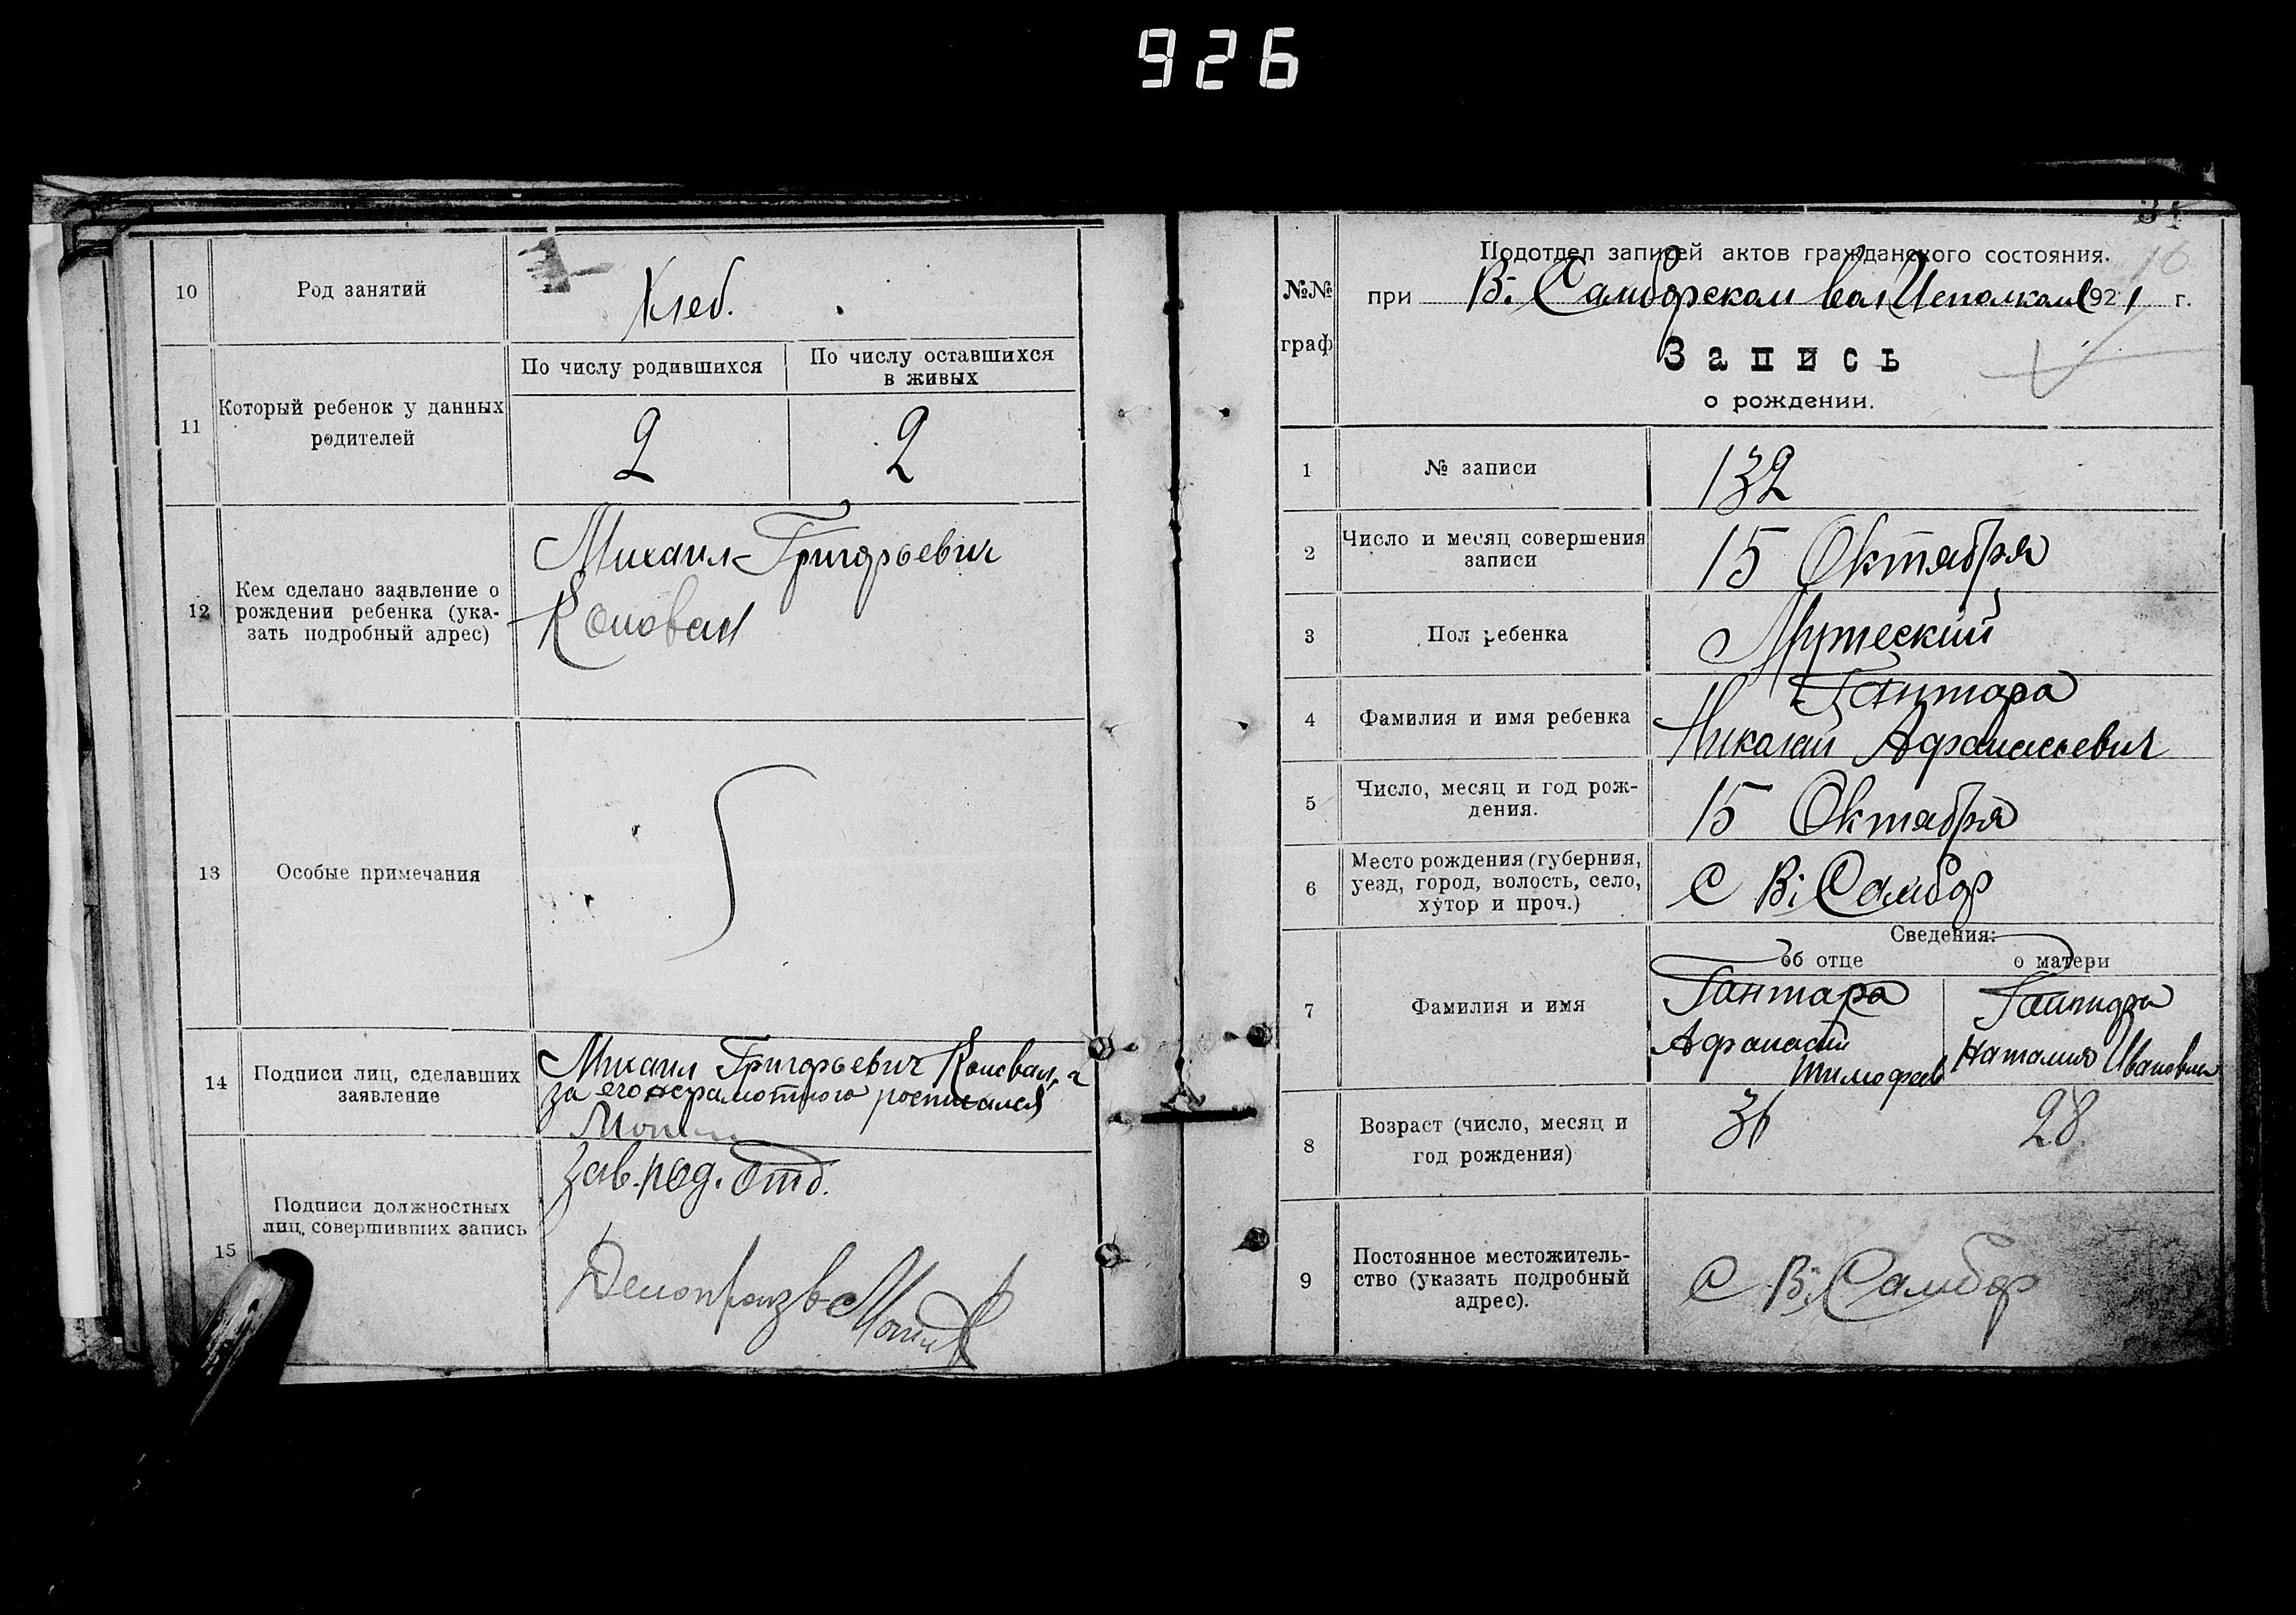 926
10
Род занятий
Хлеб.
11
Который ребенок у данных
родителей
По числу родившихся
По числу оставшихся
в живых
2
2
12
Кем сделано заявление о
рождении ребенка (ука-
зать подробный адрес)
Михаил Григорьевич
Коновал
13
Особые примечания
14
Подписи лиц, сделавших
заявление
Михаил Григорьевич Коновал, а
за его неграмотного росписался
15
Подписи должностных
лиц, совершивших запись
Зав. под. Отд.
Делопроизв
31
№№
граф
Подотдел записей актов гражданского состояния.
при В. Самборском Вол Исполкоме 1921 г.
Запись
о рождении.
1
№ записи
132
2
Число и месяц совершения
записи
15 Октября
3
Пол ребенка
Мужеский
4
Фамилия и имя ребенка
Гантара
Николай Афанасьевич
5
Число, месяц и год рож-
дения.
15 Октября
6
Место рождения (губерния,
уезд, город, волость, село,
хутор и проч.)
С В. Самбор
Сведения:
об отце
о матери
7
Фамилия и имя
Гантара
Афанасий
Тимофев
Гантара
Наталия Ивановна
8
Возраст (число, месяц и
год рождения)
36
28
9
Постоянное местожитель-
ство (указать подробный
адрес).
С В. Самбор